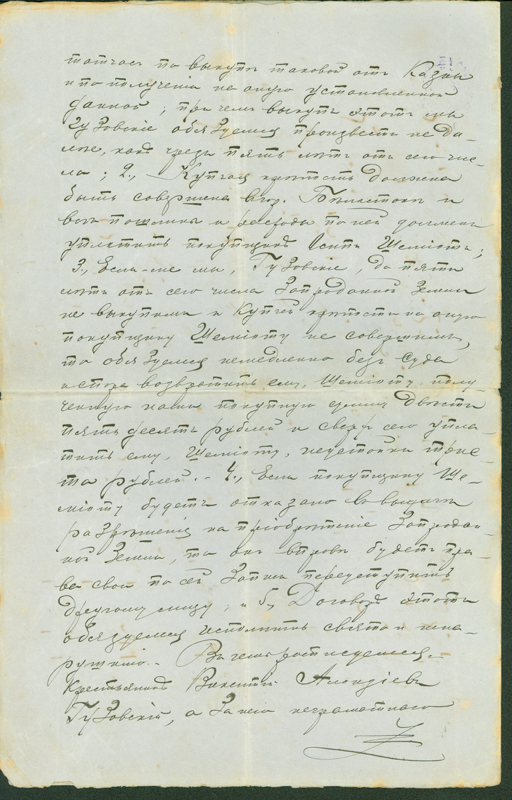 тотчасъ по выкупѣ таковой отъ Казны
и по полученіи на оную установленной
данной; при чемъ выкупъ этотъ мы
Гузовскіе обязуемся произвести не да-
лѣе, какъ чрезъ пять лѣтъ отъ сего чис-
ла; 2., Купчая крѣпость должна
быть совершена въ гор. и
всѣ пошлины и расходы по ней долженъ
уплатить покупщикъ Осипъ Шеміотъ;
3., Если-же мы, Гузовскіе, до пяти
лѣтъ отъ сего числа Запроданной Земли
не выкупимъ и Купчей крѣпости на оную
покупщику Шеміоту не совершимъ,
то обязуемся немедленно безъ суда
и спора возвратить ему, Шеміоту, полу
ченную нами покупную сумму двѣсти
пятьдесятъ рублей и сверхъ сего упла-
тить ему, Шеміоту, неустойки трис-
та рублей. - 4., Если покупщику Ше-
міоту будетъ отказано въ выдачѣ
разрѣшенія на пріобрѣтеніе Запродан-
ной Земли, то онъ вправѣ будетъ пра-
ва свои по сей Записи переуступить
другому лицу; и 5., Договоръ этотъ
обязуемся исполнить свято и нена-
рушимо. - Въ чемъ росписуемся. -
Крестьянинъ Викентій
Гузовскій, а за него неграмотнаго